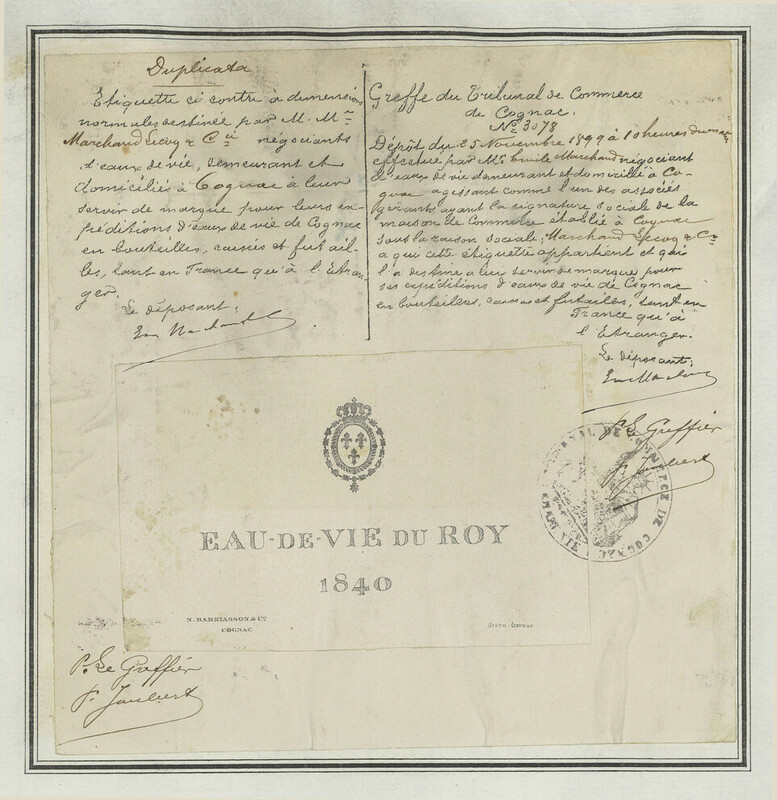 Duplicata
Etiquette ci contre à dimensions
normales destinée par M. Mrs
Marchand Lecoq & Cie négociants
d'eaux de vie, demeurant et
domiciliés à Cognac à leur
servir de marque pour leurs ex-
péditions d'eaux de vie de Cognac
en bouteilles, caisses et futail-
les, tant en France qu'à l'Etran-
ger.
Le déposant:
Em Marchand
Greffe du Tribunal de Commerce
de Cognac.
No 3078
Dépôt du 25 Novembre 1899 à 10 heures du matin
effectué par Mr Emile Marchand négociant
d'eaux de vie demeurant et domicilié à Co-
gnac agissant comme l'un des associés
gérants ayant la signature sociale de la
maison de Commerce établie à Cognac
sous la raison sociale: Marchand Lecoq & Cie
a qui cette étiquette appartient et qui
l'a destine a leur servir de marque pour
ses expéditions d'eaux de vie de Cognac
en bouteilles, caisses et futailles, tant en
France qu'à
l'Etranger.
Le déposant:
Em Marchand
P. Le Greffier
F. Jaubert
TRIBUNAL DE COMMERCE DE COGNAC
EAU-DE-VIE DU ROY
1840
N. BARRIASSON & Co
COGNAC
P. Le Greffier
F. Jaubert